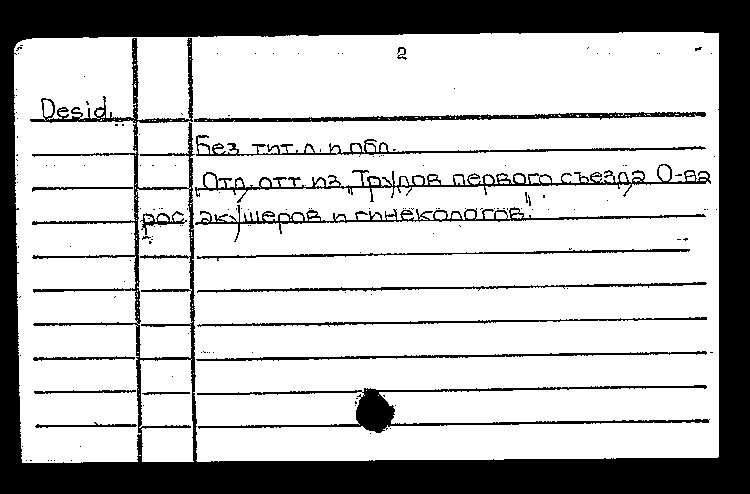 2
Desid.
Без тит. л. и обл.
Отд. отт. из „Трудов первого съезда О-ва
рос акушеров и гинекологов".